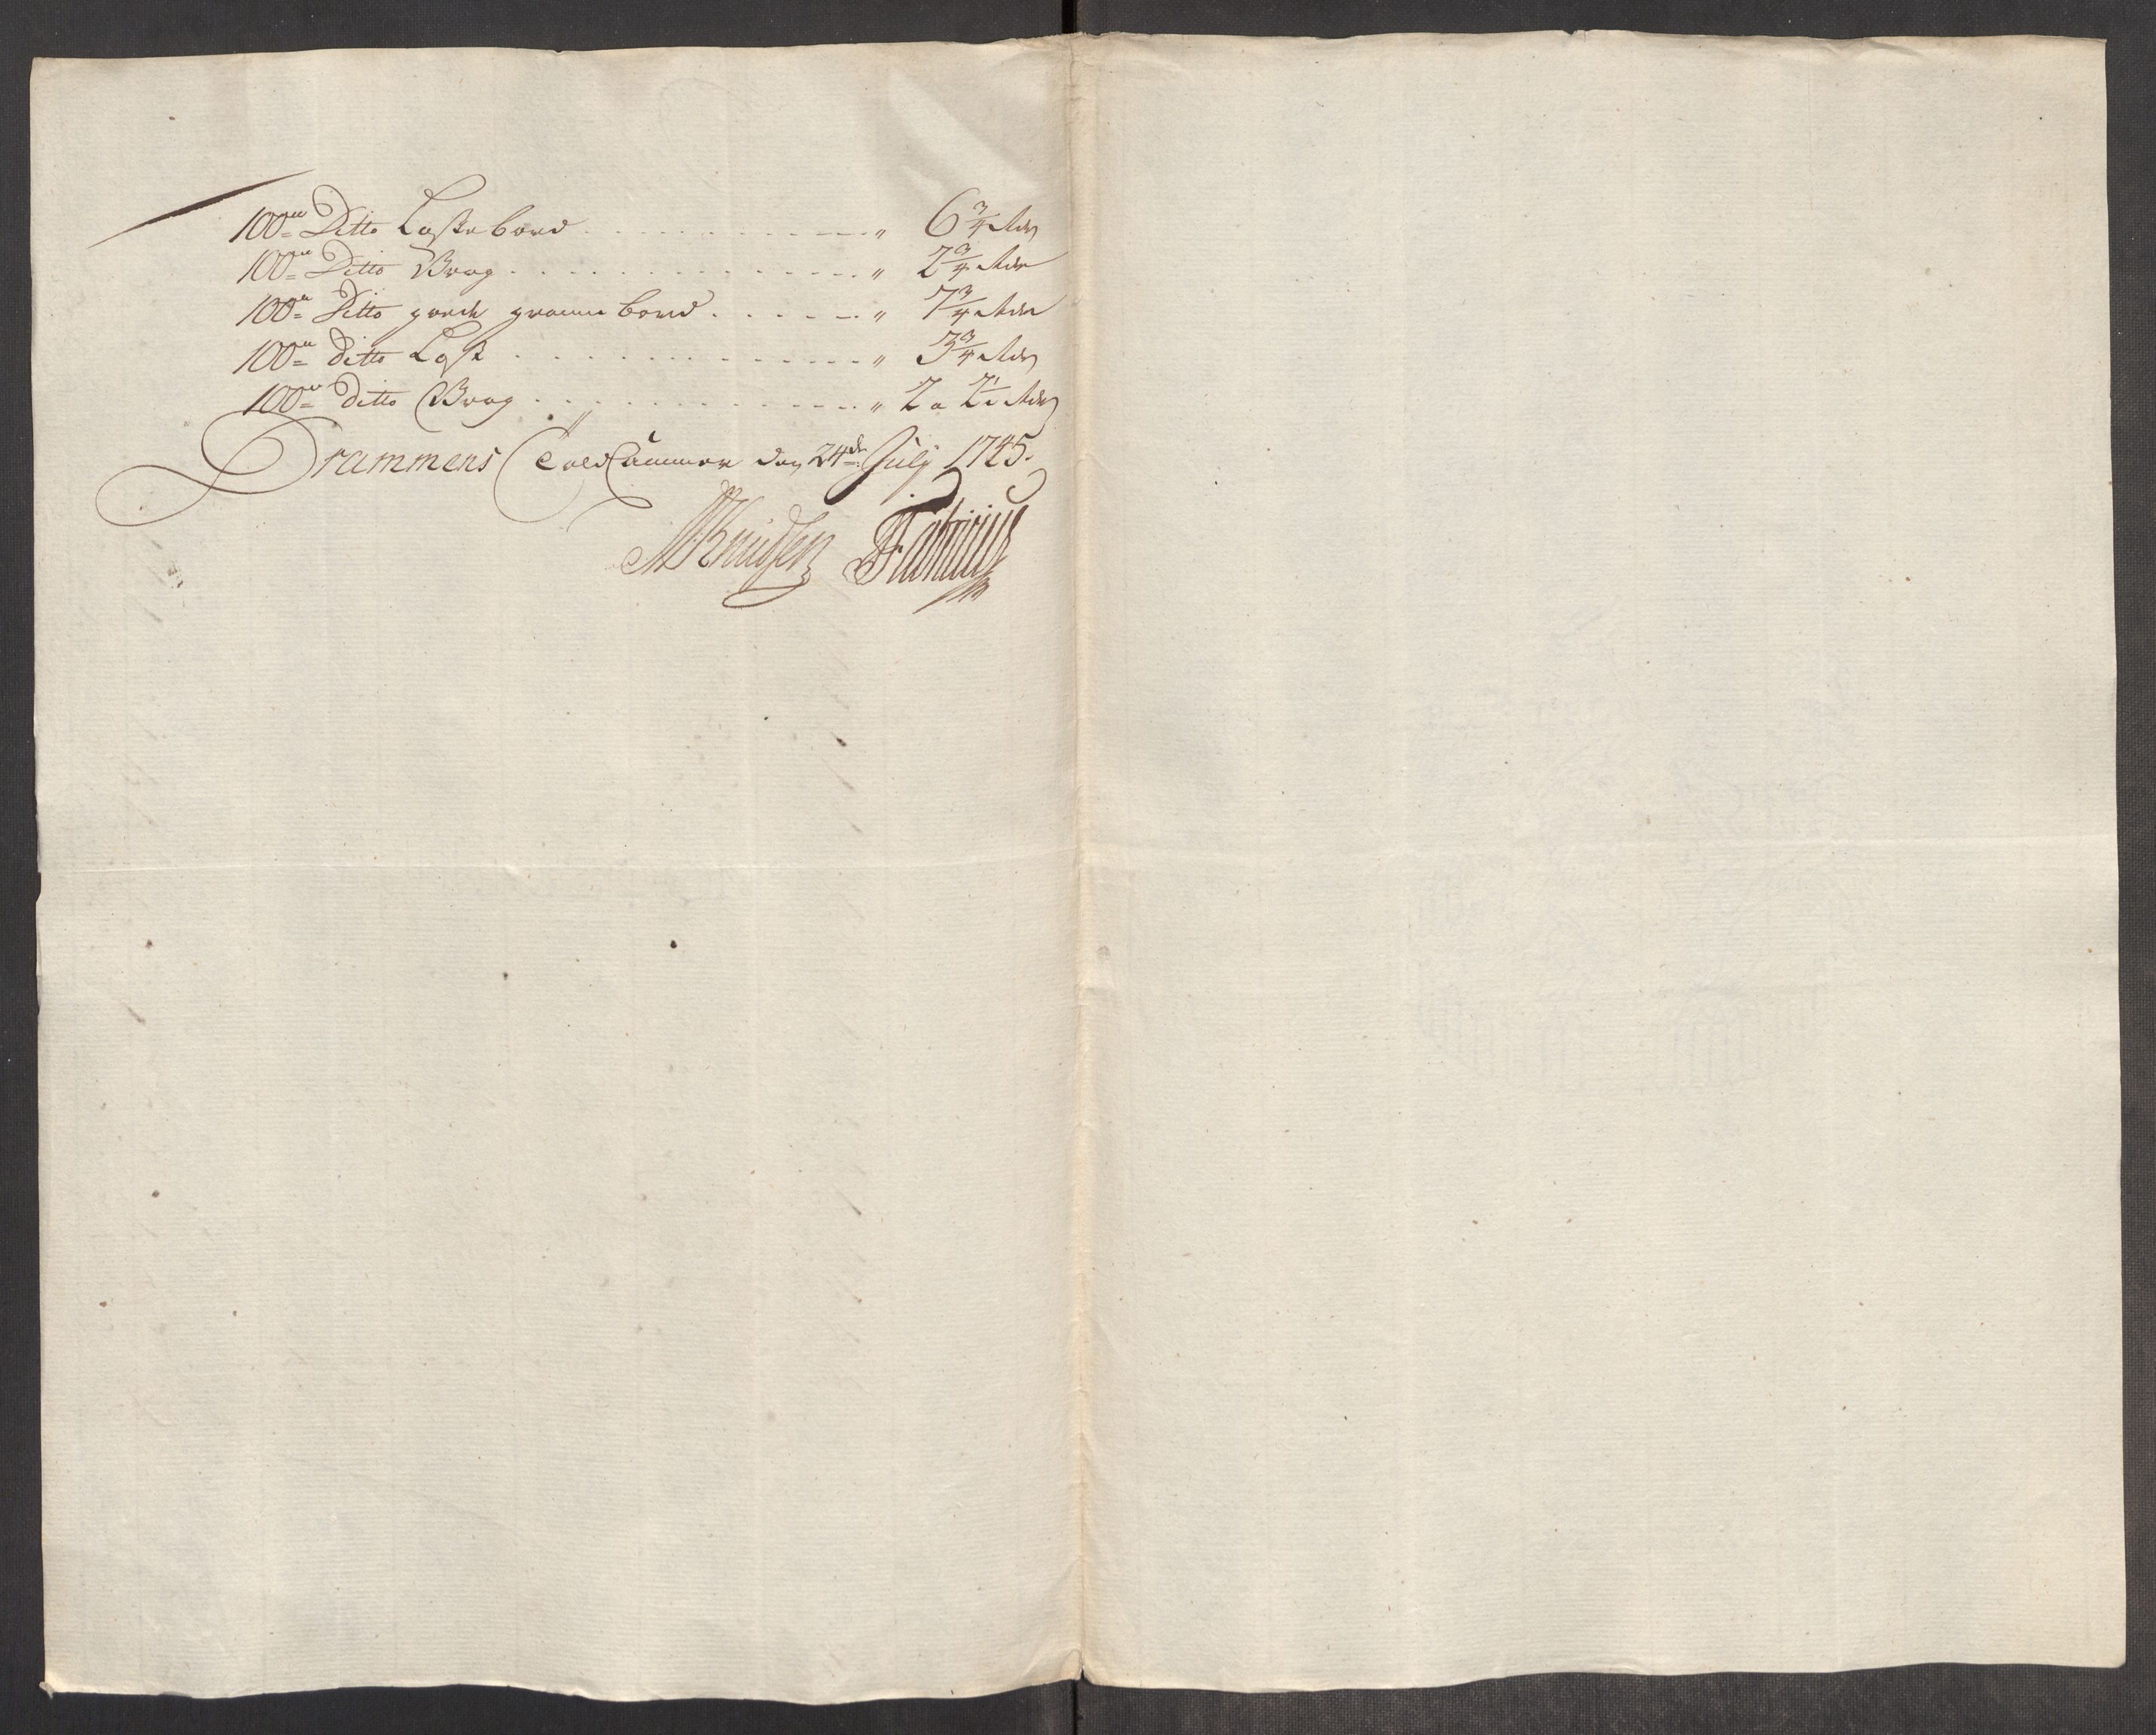 100de Ditto Laste bord . . . . . . . . . . . „ 6 3/4 Rdr
100de Ditto Vrag . . . . . . . . . . . . . „ 2 3/4 Rdr
100de Ditto gode granne bord . . . . . . „ 7 3/4 Rdr
100de ditto Last . . . . . . . . . . . . . „ 3 3/4 Rdr
100de ditto Vrag . . . . . . . . . . . . „ 2 a Rdr
Drammens Told Cammer den 24de July 1745.
Knudsen Fabricius